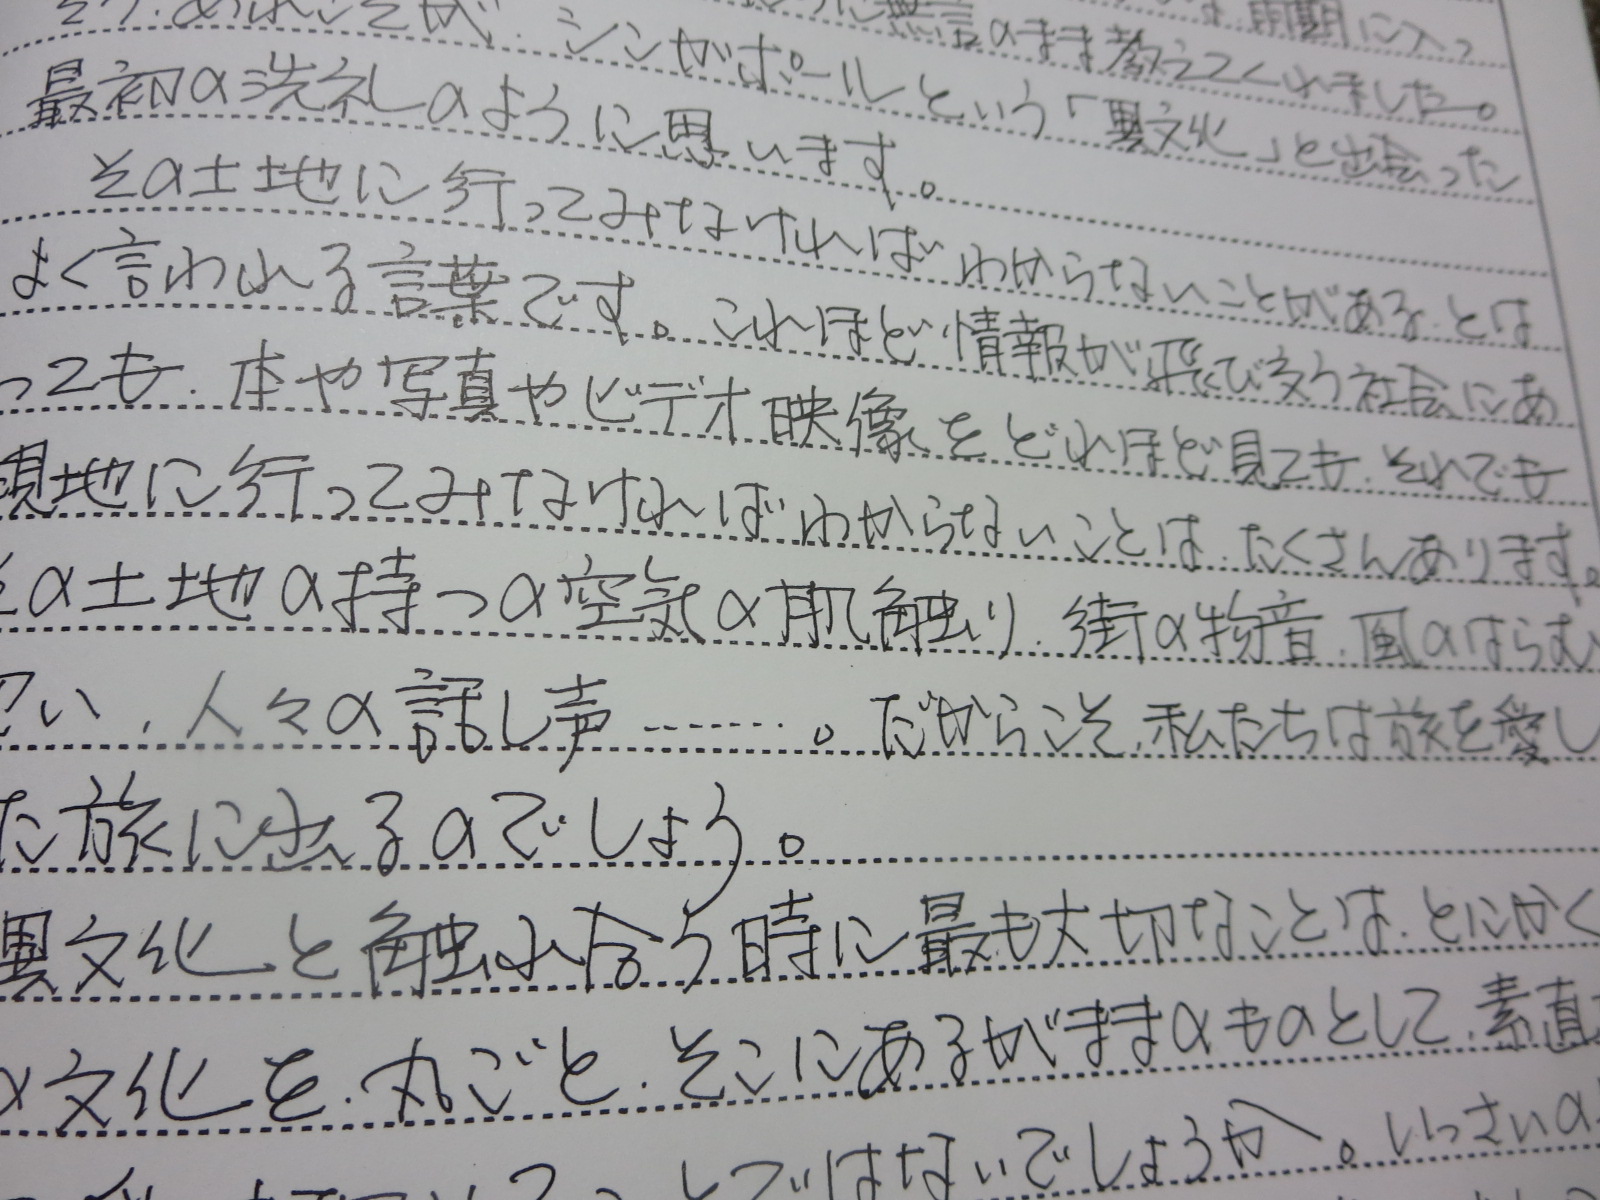 無言のまま教えてくれました。
そう、あれこそが、シンガポールという「異文化」と出会った
最初の洗礼のように思います。
その土地に行ってみなければわからないことがある、とは
よく言われる言葉です。これほど情報が飛び交う社会にあ
っても、本や写真やビデオ映像をどれほど見ても、それでも
現地に行ってみなければわからないことは、たくさんあります。
その土地の持つの空気の肌触り、街の物音、風のはらむ
匂い、人々の話し声………。だからこそ、私たちは旅を愛し
た旅に出るのでしょう。
異文化と触れ合う時に最も大切なことは、とにかく
の文化を、丸ごと、そこにあるがままのものとして、素直
ことではないでしょうか。いっさいの